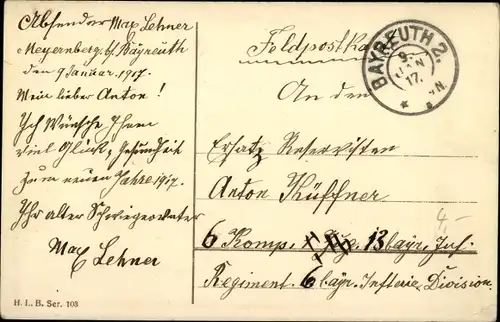 Absender Max Lehner
Meyernberg b/ Bayreuth
den 9 Januar 1917.
Mein lieber Anton!
Ich Wünsche Ihnen
viel Glück, Gesundheit
zum neuen Jahre 1917.
Ihr alter Schwiegervater
Max Lehner
H. I. B. Ser. 103
Feldpostkarte
BAYREUTH 2.
9.
JAN
17.
An den
Ersatz Reservisten
Anton Küffner
6 Komp. 13 bayr. Inf.
Regiment. 6 bayr. Infterie Division.
4,-